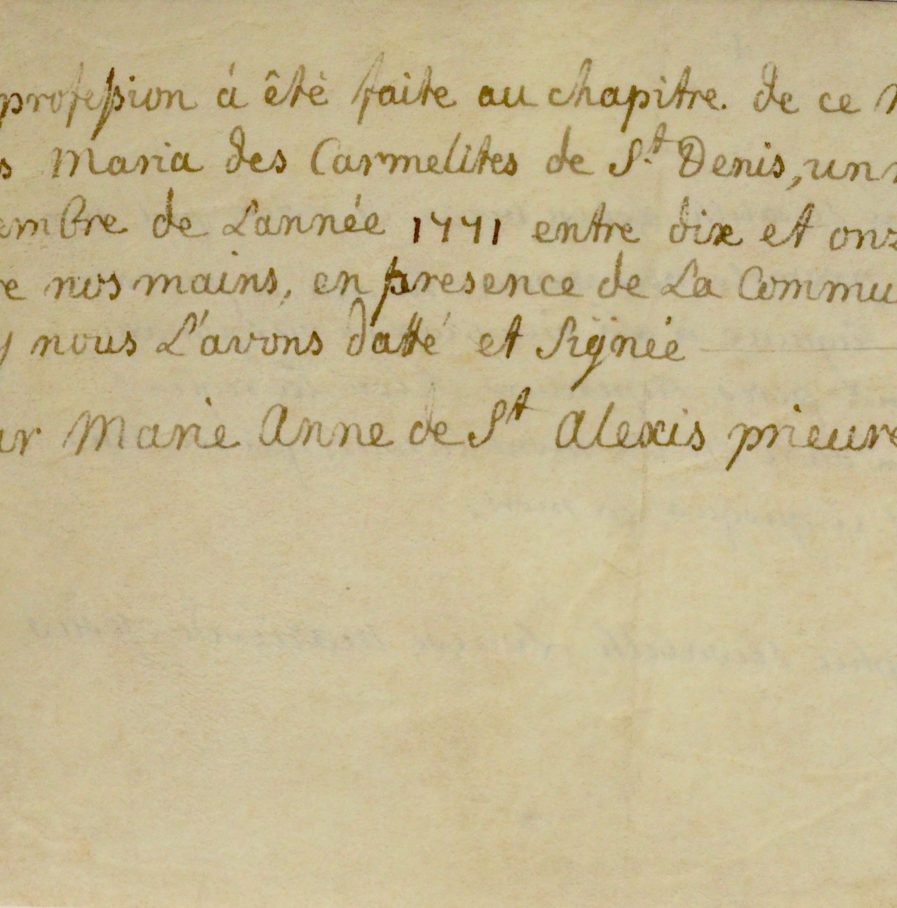 profession á êtê faite au chapitre. de ce
s Maria des Carmelites de St. Denis, un
embre de L'année 1771 entre dix et onz
e nos mains, en presence de La Commu
y nous L'avons datté et Signée
ur Marie Anne de St Alexis prieure